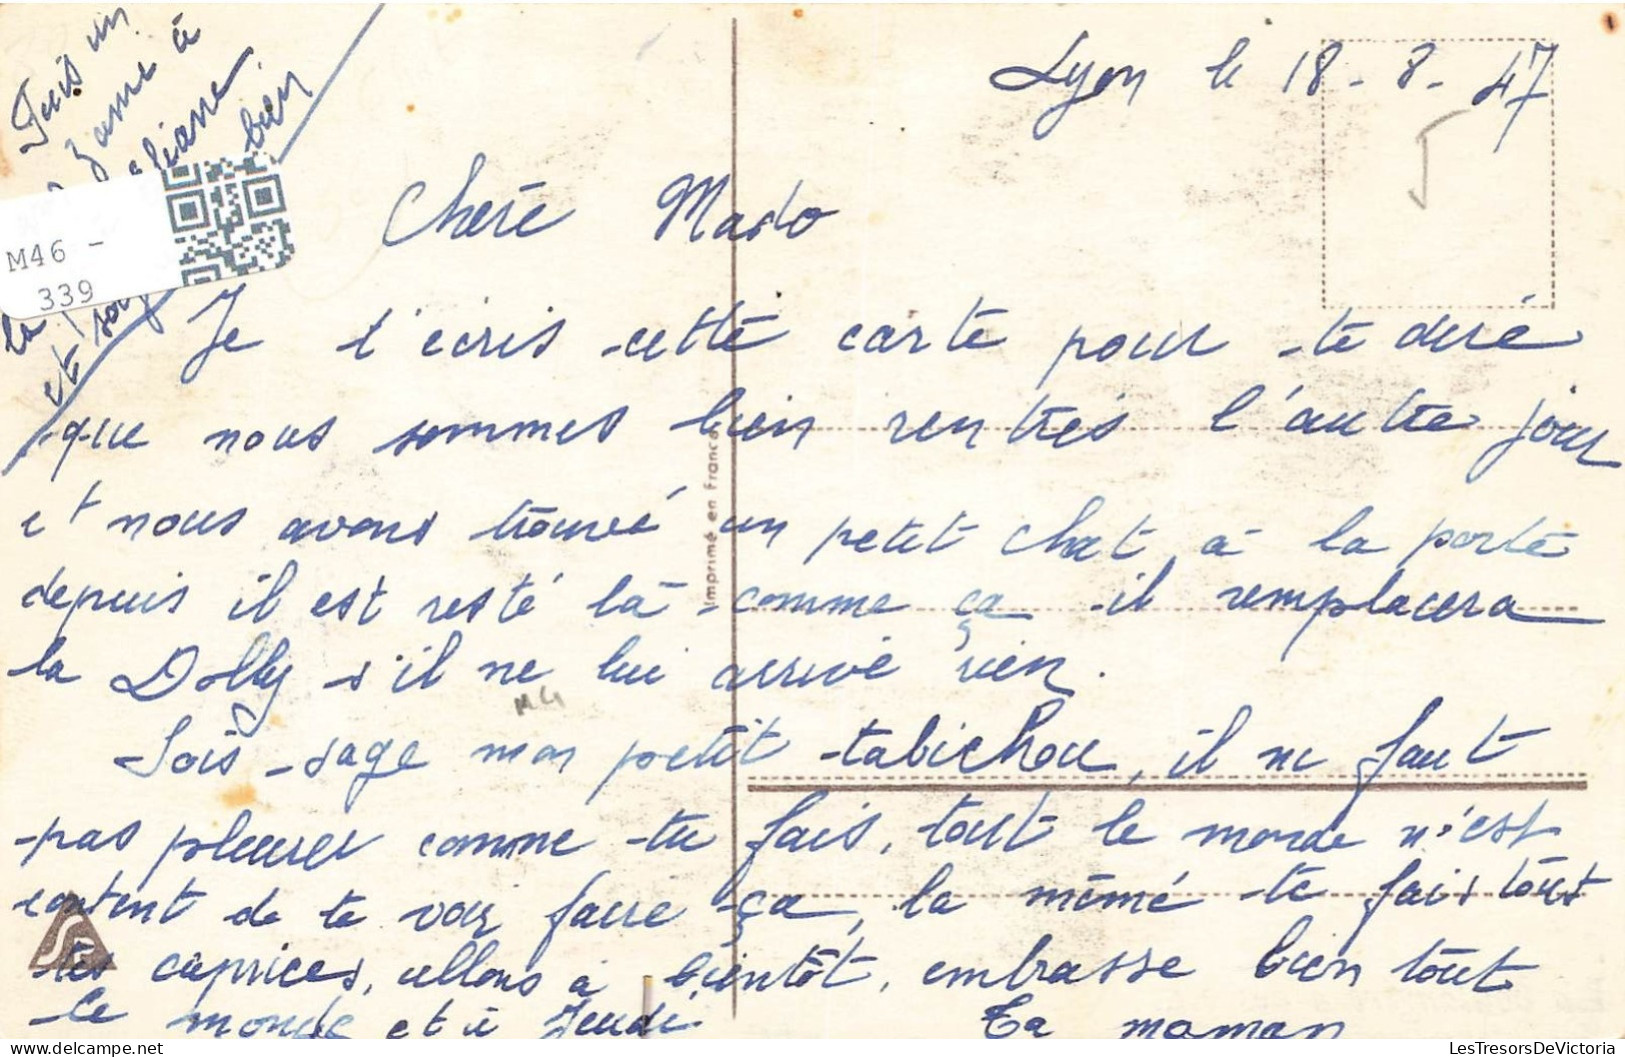 Lyon le 18-8-47
Chère Mado
Je t'écris cette carte pour te dire
que nous sommes bien rentrés l'autre jour
et nous avons trouvé un petit chat à la porte
depuis il est resté là comme ça il remplacera
la Dolly s'il ne lui arrive rien.
Sois sage mon petit tabichou, il ne faut
pas pleurer comme tu fais, tout le monde n'est
content de te voir faire ça, la mémé te fais tout
tes caprices, allons à bientôt, embrasse bien tout
le monde et à Jeudi
Ta maman
Fais un
à
Eliane
bien
la
et
M46 -
339
Imprimé en France
M4
LesTresorsDeVictoria
www.delcampe.net